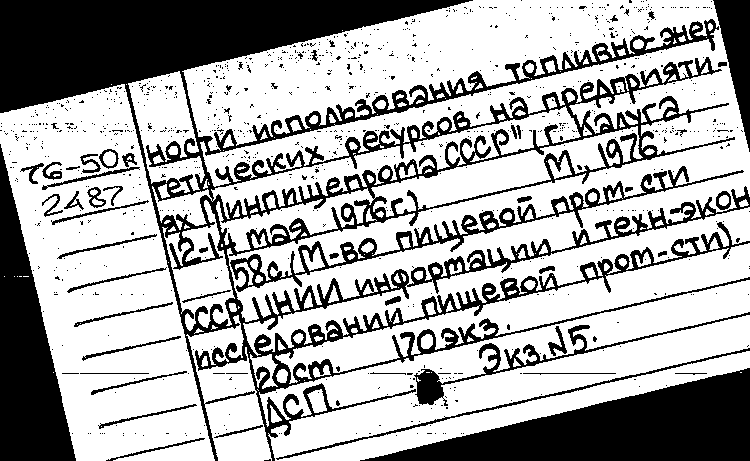 ности использования топливно-энер
76-50в гетических ресурсов на предприяти-
2487 ях Минпищепрома СССР" (г. Калуга,
12-14 мая 1976 г.). М., 1976.
58с. (М-во пищевой пром-сти
СССР. ЦНИИ информации и техн.-экон
исследований пищевой пром-сти).
20см. 170 экз.
ДСП. Экз. N5.